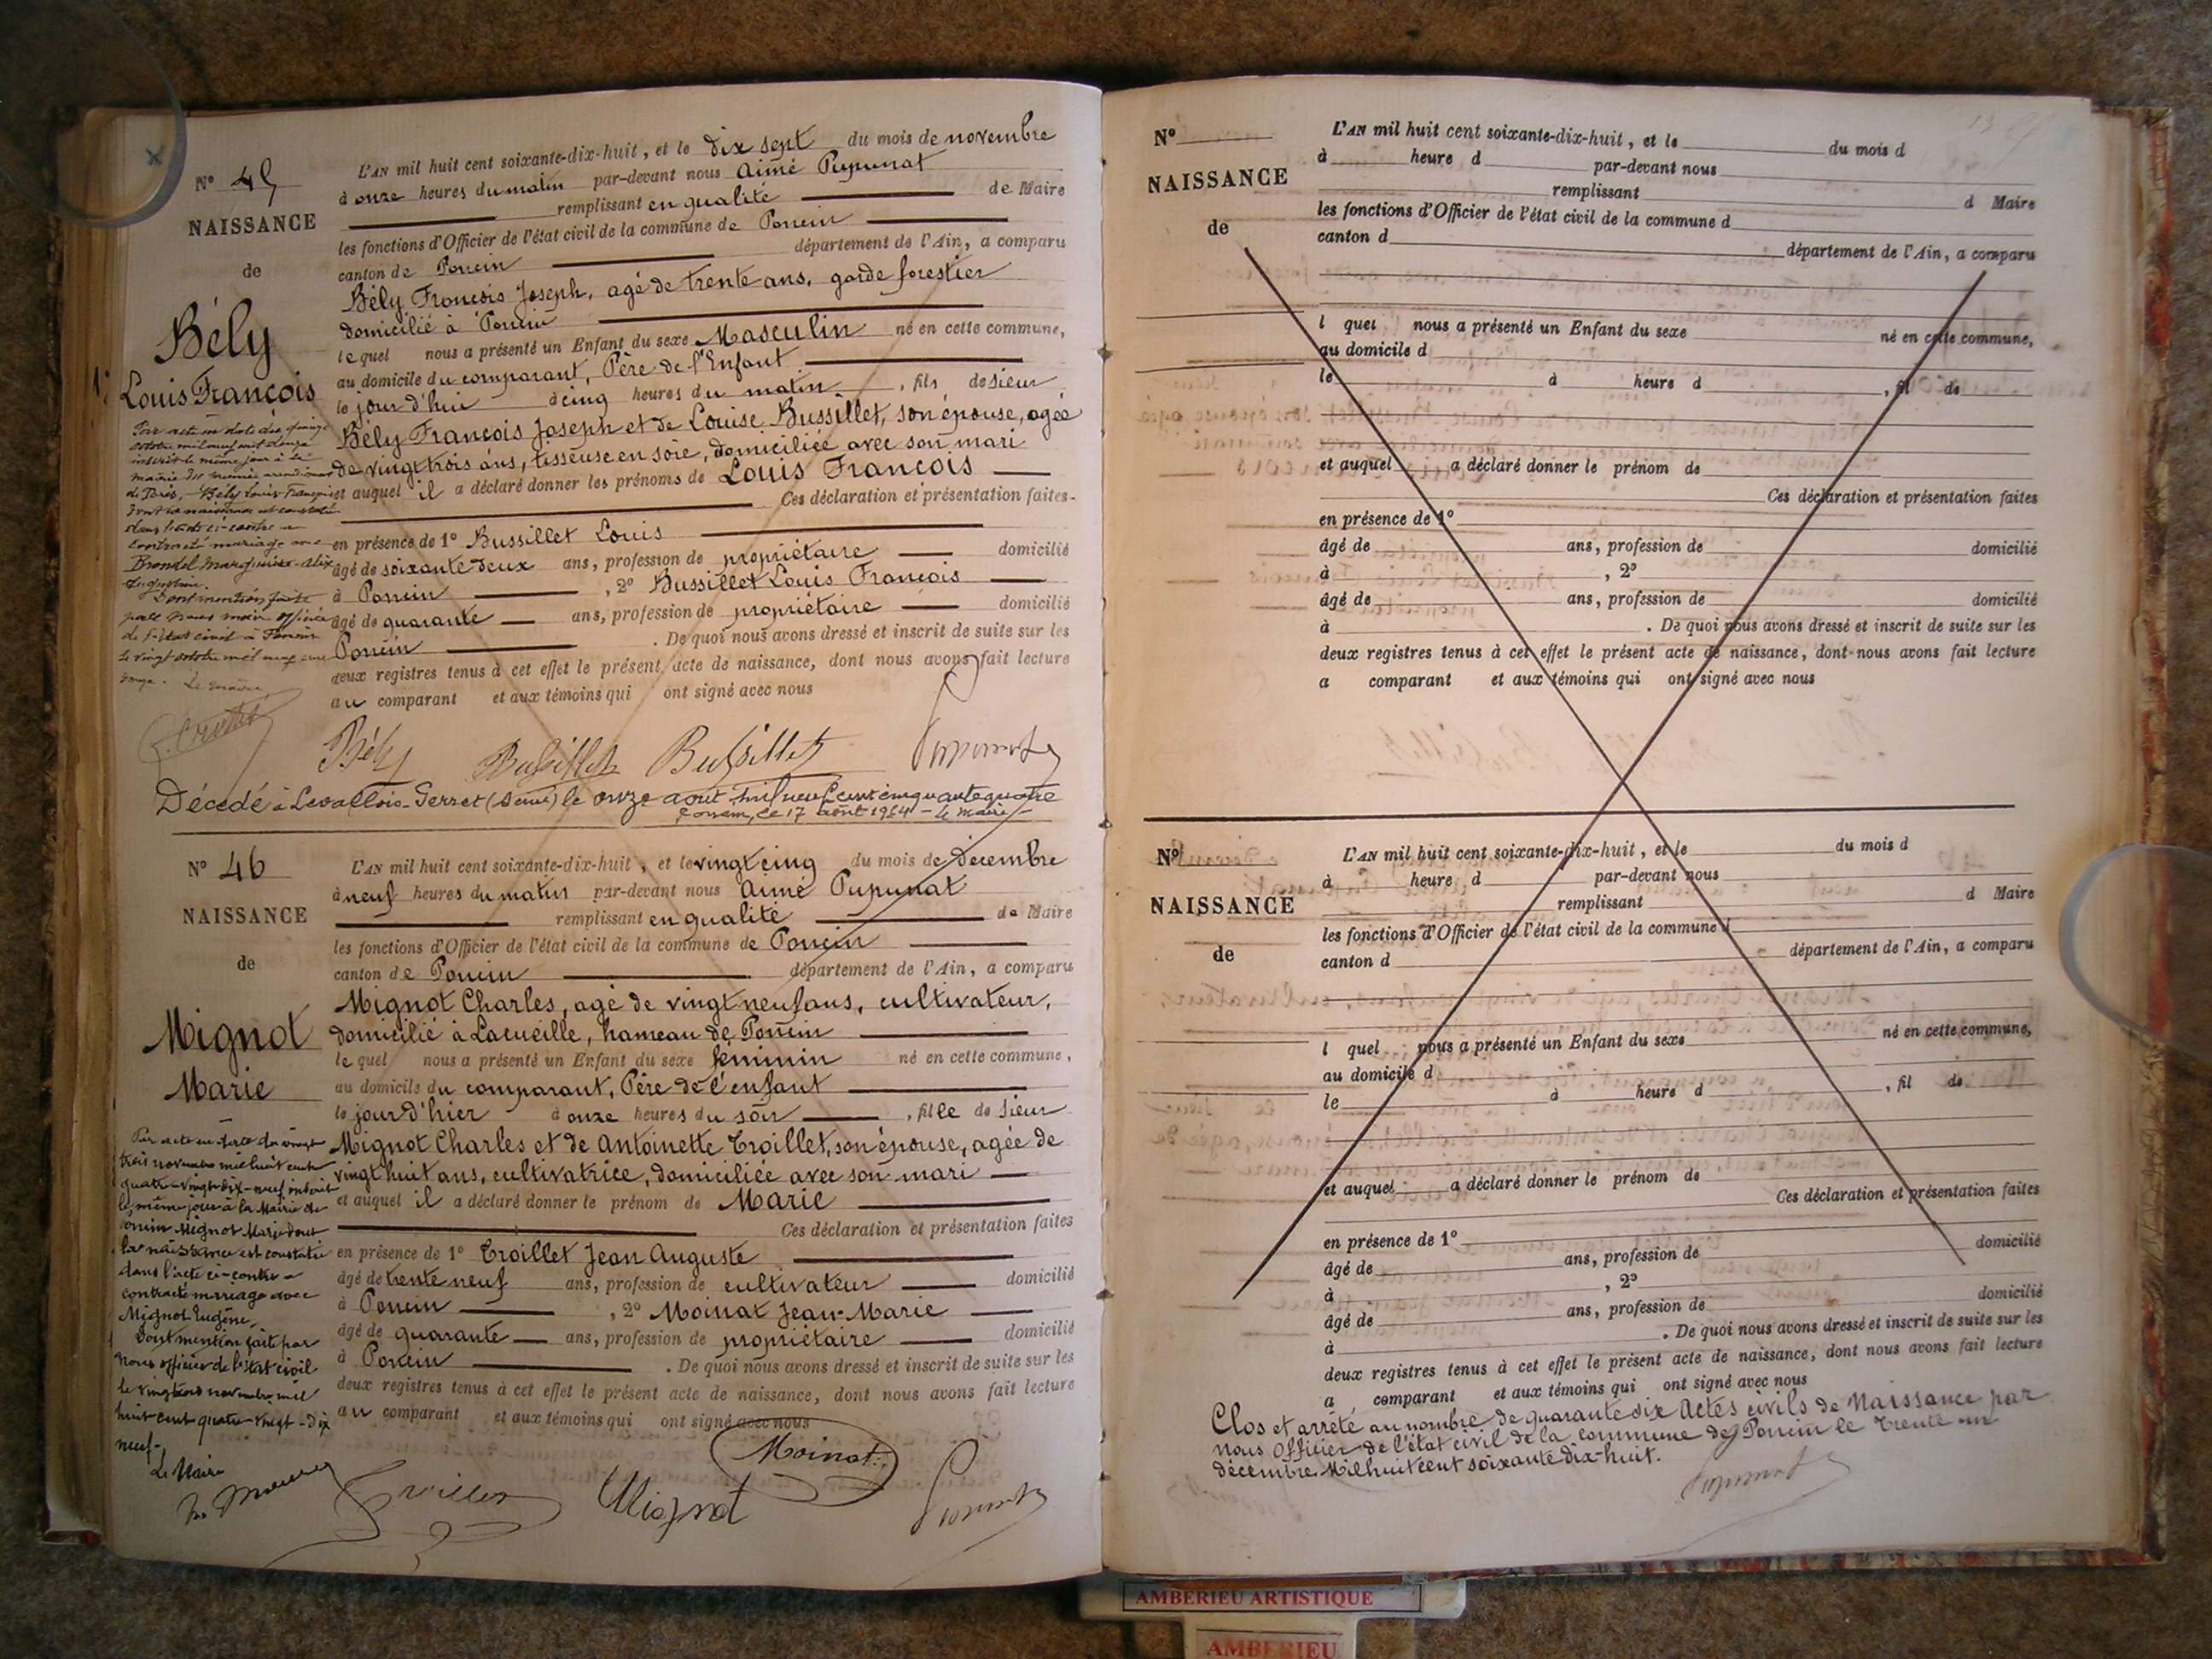 N° 45
NAISSANCE
de
Bély
Louis François
Par acte en date du quinze
octobre mil neuf cent douze
inscrit le même jour à la
mairie du premier arrondissement
de Paris, Bély Louis François
dont la naissance est constatée
dans l'acte ci-contre a
contracté mariage avec
Marguerite Alix
Dont mention faite
par nous maire officier
de l'état civil à Poncin
le vingt octobre mil neuf cent
douze. Le maire,
L'AN mil huit cent soixante-dix-huit, et le dix sept du mois de novembre
à onze heures du matin par-devant nous Aimé Pupunat
remplissant en qualité de Maire
les fonctions d'Officier de l'état civil de la commune de Poncin
canton de Poncin département de l'Ain, a comparu
Bély François Joseph, agé de trente ans, garde forestier
domicilié à Poncin
le quel nous a présenté un Enfant du sexe Masculin né en cette commune,
au domicile du comparant, Père de l'Enfant
le jour d'hui à cinq heures du matin, fils de sieur
Bély François Joseph et de Louise Bussillet, son épouse, agée
de vingt trois ans, tisseuse en soie, domiciliée avec son mari
et auquel il a déclaré donner les prénoms de Louis François
Ces déclaration et présentation faites
en présence de 1° Bussillet Louis
âgé de soixante deux ans, profession de propriétaire domicilié
à Poncin, 2° Bussillet Louis François
âgé de quarante ans, profession de propriétaire domicilié
Poncin. De quoi nous avons dressé et inscrit de suite sur les
deux registres tenus à cet effet le présent acte de naissance, dont nous avons fait lecture
au comparant et aux témoins qui ont signé avec nous
Bély Bussillet Bussillet Pupunat
Décédé à Levallois-Perret (Seine) le onze août mil neuf cent cinquante quatre
Poncin, le 17 août 1954 - Le maire
N° 46
NAISSANCE
de
Mignot
Marie
Par acte en date du vingt
trois novembre mil huit cent
quatre-vingt-dix-neuf inscrit
le même jour à la Mairie de
Poncin Mignot Marie dont
la naissance est constatée
dans l'acte ci-contre a
contracté mariage avec
Mignot Eugène,
Dont mention faite par
nous officier de l'état civil
le vingt trois novembre mil
huit cent quatre-vingt-dix
neuf.
Le Maire
L'AN mil huit cent soixante-dix-huit, et le vingt cinq du mois de décembre
à neuf heures du matin par-devant nous Aimé Pupunat
remplissant en qualité de Maire
les fonctions d'Officier de l'état civil de la commune de Poncin
canton de Poncin département de l'Ain, a comparu
Mignot Charles, agé de vingt neuf ans, cultivateur,
domicilié à Lacueille, hameau de Poncin
le quel nous a présenté un Enfant du sexe féminin né en cette commune,
au domicile du comparant, Père de l'enfant
le jour d'hier à onze heures du soir, fille de sieur
Mignot Charles et de Antoinette Troillet, son épouse, agée de
vingt huit ans, cultivatrice, domiciliée avec son mari
et auquel il a déclaré donner le prénom de Marie
Ces déclaration et présentation faites
en présence de 1° Troillet Jean Auguste
âgé de trente neuf ans, profession de cultivateur domicilié
à Poncin, 2° Moinat Jean-Marie
âgé de quarante ans, profession de propriétaire domicilié
à Poncin. De quoi nous avons dressé et inscrit de suite sur les
deux registres tenus à cet effet le présent acte de naissance, dont nous avons fait lecture
au comparant et aux témoins qui ont signé avec nous
Moinat
Troillet Mignot Pupunat
N°
NAISSANCE
de
L'AN mil huit cent soixante-dix-huit, et le du mois d
à heure d par-devant nous
remplissant d Maire
les fonctions d'Officier de l'état civil de la commune d
canton d département de l'Ain, a comparu
l quel nous a présenté un Enfant du sexe né en cette commune,
au domicile d
le à heure d, fil de
et auquel a déclaré donner le prénom de
Ces déclaration et présentation faites
en présence de 1°
âgé de ans, profession de domicilié
à, 2°
âgé de ans, profession de domicilié
à. De quoi nous avons dressé et inscrit de suite sur les
deux registres tenus à cet effet le présent acte de naissance, dont nous avons fait lecture
a comparant et aux témoins qui ont signé avec nous
N°
NAISSANCE
de
L'AN mil huit cent soixante-dix-huit, et le du mois d
à heure d par-devant nous
remplissant d Maire
les fonctions d'Officier de l'état civil de la commune d
canton d département de l'Ain, a comparu
l quel nous a présenté un Enfant du sexe né en cette commune,
au domicile d
le à heure d, fil de
et auquel a déclaré donner le prénom de
Ces déclaration et présentation faites
en présence de 1°
âgé de ans, profession de domicilié
à, 2°
âgé de ans, profession de domicilié
à. De quoi nous avons dressé et inscrit de suite sur les
deux registres tenus à cet effet le présent acte de naissance, dont nous avons fait lecture
a comparant et aux témoins qui ont signé avec nous
Clos et arrêté au nombre de quarante six Actes civils de Naissance par
nous Officier de l'état civil de la commune de Poncin le trente un
décembre Mil huit cent soixante dix-huit.
Pupunat
AMBERIEU ARTISTIQUE
AMBERIEU